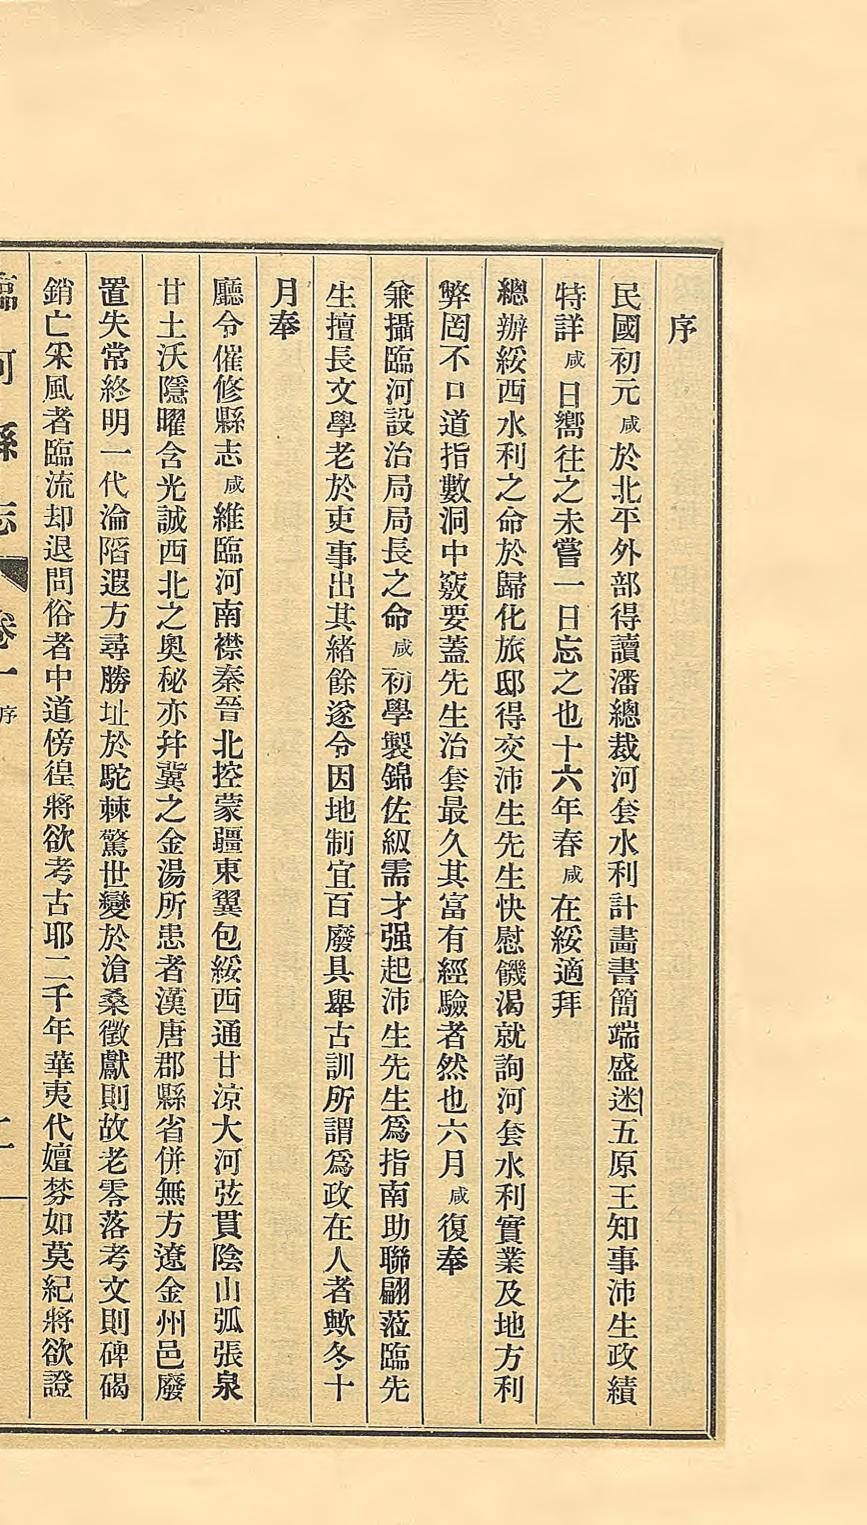 序
民國初元咸於北平外部得讀潘總裁河套水利計畫書簡端盛迷五原王知事沛生政績
特詳咸日嚮往之未嘗一日忘之也十六年春咸在綏適拜
總辦綏西水利之命於歸化旅邸得交沛生先生快慰饑渴就詢河套水利實業及地方利
弊罔不口道指數洞中竅要蓋先生治套最久其富有經驗者然也六月咸復奉
兼攝臨河設治局局長之命咸初學製錦佐紉需才强起沛生先生爲指南助聯翩蒞臨先
生擅長文學老於吏事出其緒餘遂令因地制宜百廢具舉古訓所謂爲政在人者歟冬十
月奉
廳令催修縣志咸維臨河南襟秦晉北控蒙疆東翼包綏西通甘涼大河弦貫陰山弧張泉
甘土沃隱曜含光誠西北之奧秘亦幷冀之金湯所患者漢唐郡縣省併無方遼金州邑廢
置失常終明一代淪陷遐方尋勝址於駝棘驚世變於滄桑徵獻則故老零落考文則碑碣
銷亡采風者臨流却退問俗者中道傍徨將欲考古耶二千年華夷代嬗棼如莫紀將欲證
臨河縣志 卷一 序